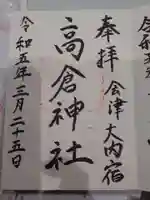 奉拝 会津大内宿
高倉神社
令和五年三月二十五日